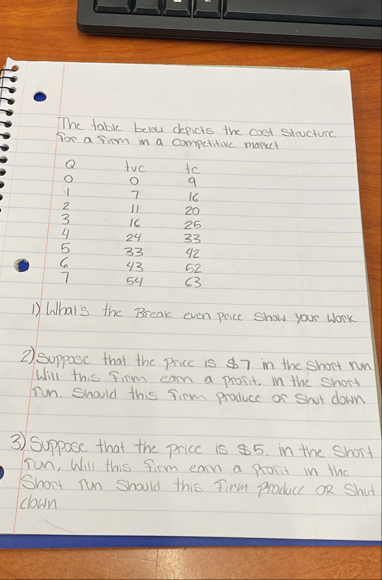 The table below depicts the cost structure
for a firm in a competitive market
Q tvc tc
0 0 9
1 7 16
2 11 20
3 16 25
4 24 33
5 33 42
6 43 52
7 54 63
1) What's the Break even price show your work
2) Suppose that the price is $7 in the short run
Will this firm earn a profit. in the short
run. Should this firm produce or shut down
3) Suppose that the price is $5. in the short
run, Will this firm earn a profit in the
Short run should this firm produce OR Shut
down